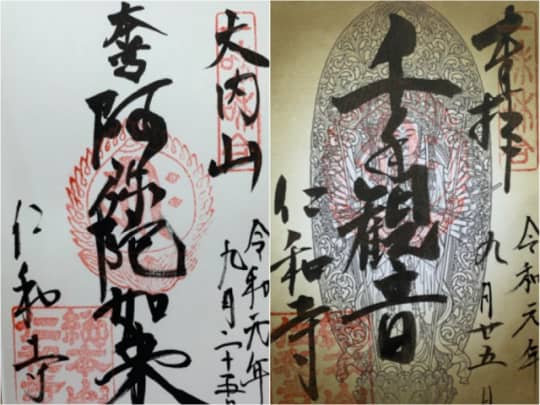 大内山
令和元年
九月二十五日
阿弥陀如来
仁和寺
総本山
仁和寺
奉拝
令和元年
九月廿五日
千手観音
仁和寺